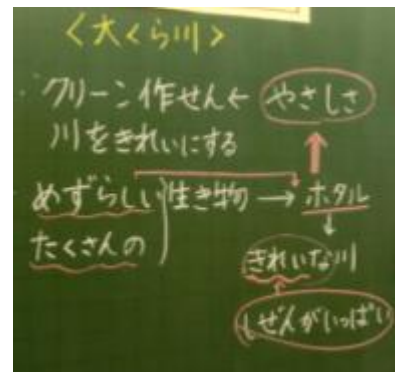 <大くら川>
・クリーン作せん← やさしさ
川をきれいにする
めずらしい 生き物→ホタル
たくさんの
きれいな川
しぜんがいっぱい